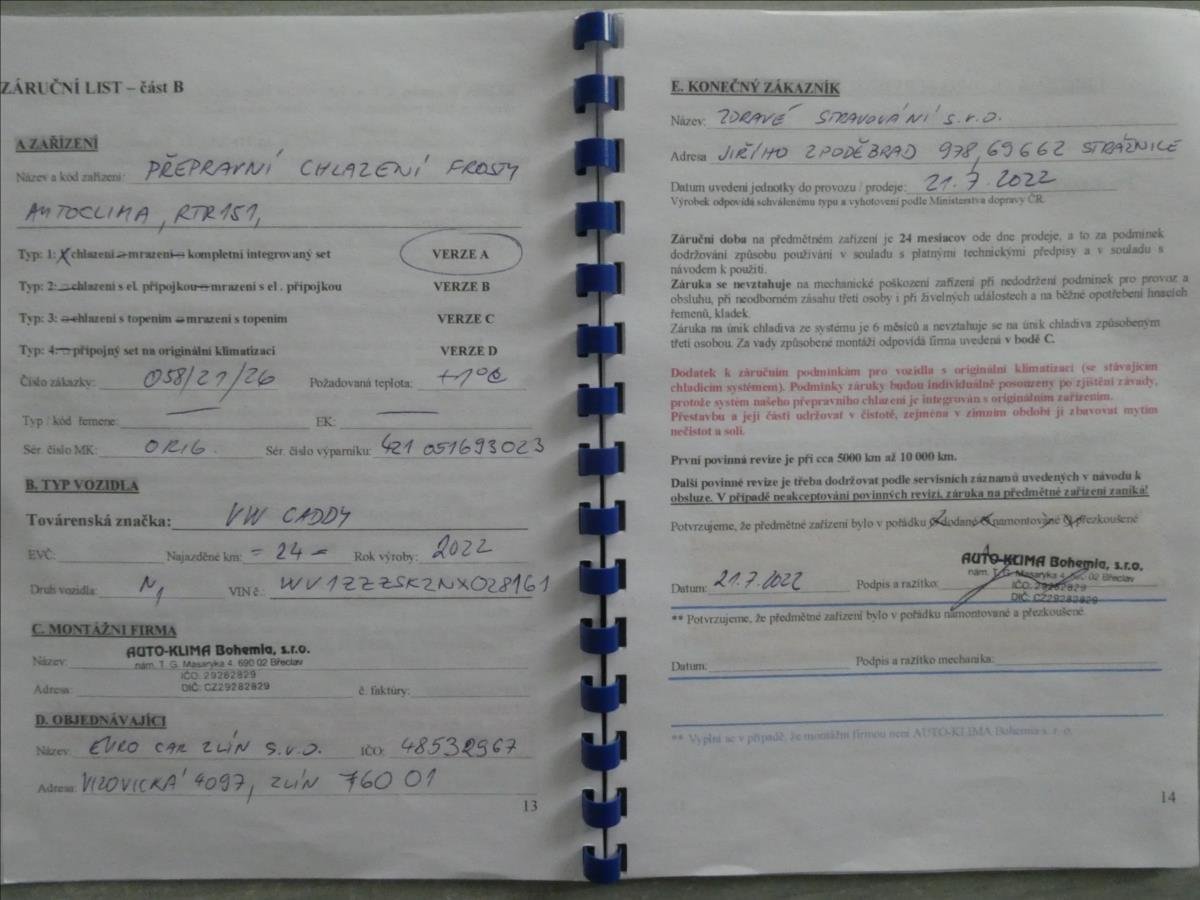 ZÁRUČNÍ LIST – část B
A ZAŘÍZENÍ
Název a kód zařízení: PŘEPRAVNÍ CHLAZENÍ FROSTY
AUTOCLIMA, RTR151,
Typ: 1: chlazení mrazení kompletní integrovaný set VERZE A
Typ: 2: chlazení s el. přípojkou mrazení s el. přípojkou VERZE B
Typ: 3: chlazení s topením mrazení s topením VERZE C
Typ: 4: přípojný set na originální klimatizaci VERZE D
Číslo zákazky: 058/21/26 Požadovaná teplota: +1°C
Typ / kód řemene: — EK: —
Sér. číslo MK: ORIG. Sér. číslo výparníku: 421 051693023
B. TYP VOZIDLA
Továrenská značka: VW CADDY
EVČ: Najazděné km: = 24 = Rok výroby: 2022
Druh vozidla: N1 VIN č.: WV1ZZZSKZNX028161
C. MONTÁŽNI FIRMA
AUTO-KLIMA Bohemia, s.r.o.
Název: nám. T. G. Masaryka 4, 690 02 Břeclav
IČO: 29282829
Adresa: DIČ: CZ29282829 č. faktúry:
D. OBJEDNÁVAJÍCI
Název: EURO CAR ZLÍN S.V.O. IČO: 48532967
Adresa: VIZOVICKÁ 4097, ZLÍN 760 01
13
E. KONEČNÝ ZÁKAZNÍK
Název: ZDRAVÉ STRAVOVÁNÍ s.r.o.
Adresa JIŘÍHO Z PODĚBRAD 978, 69662 STRÁŽNICE
Datum uvedení jednotky do provozu / prodeje: 21.7.2022
Výrobek odpovídá schválenému typu a vyhotovení podle Ministerstva dopravy ČR.
Záruční doba na předmětném zařízení je 24 mesiacov ode dne prodeje, a to za podmínek
dodržování způsobu používání v souladu s platnými technickými předpisy a v souladu s
návodem k použití.
Záruka se nevztahuje na mechanické poškození zařízení při nedodržení podmínek pro provoz a
obsluhu, při neodborném zásahu třetí osoby i při živelných událostech a na běžné opotřebení hnacích
řemenů, kladek.
Záruka na únik chladiva ze systému je 6 měsíců a nevztahuje se na únik chladiva způsobeným
třetí osobou. Za vady způsobené montáží odpovídá firma uvedená v bodě C.
Dodatek k záručním podmínkám pro vozidla s originální klimatizací (se stávajícím
chladicím systémem). Podmínky záruky budou individuálně posouzeny po zjištění závady,
protože systém našeho přepravního chlazení je integrován s originálním zařízením.
Přestavbu a její části udržovat v čistotě, zejména v zimním období ji zbavovat mytím
nečistot a soli.
První povinná revize je při cca 5000 km až 10 000 km.
Další povinné revize je třeba dodržovat podle servisních záznamů uvedených v návodu k
obsluze. V případě neakceptování povinných revizí, záruka na předmětné zařízení zaniká!
Potvrzujeme, že předmětné zařízení bylo v pořádku dodané namontováne přezkoušené
AUTO-KLIMA Bohemia, s.r.o.
nám. T. G. Masaryka 4, 690 02 Břeclav
Datum: 21.7.2022 Podpis a razítko: IČO: 29282829
DIČ: CZ29282829
** Potvrzujeme, že předmětné zařízení bylo v pořádku namontované a přezkoušené.
Datum: Podpis a razítko mechanika:
** Vyplní se v případě, že montážní firmou není AUTO-KLIMA Bohemia s. r. o.
14